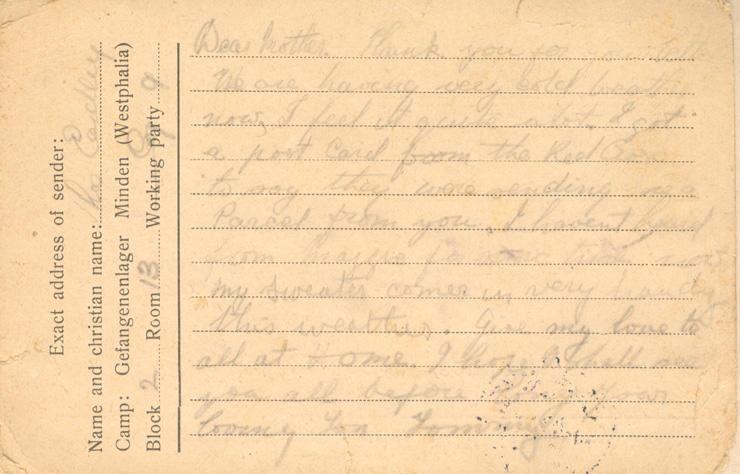 Exact address of sender:
Name and christian name:
Camp: Gefangenenlager Minden (Westphalia)
Block 2 Room 13 Working party 9
Dear Mother. Thank you for your
We are having very cold weather
now, I feel it quite a lot. I got
a post card from the Red Cross
to say they were sending me a
Parcel from you, I havent heard
from now
my sweater comes in very handy
this weather. Give my love to
all at Home. I hope I shall see
you all before long. Your
loving Son Tommy